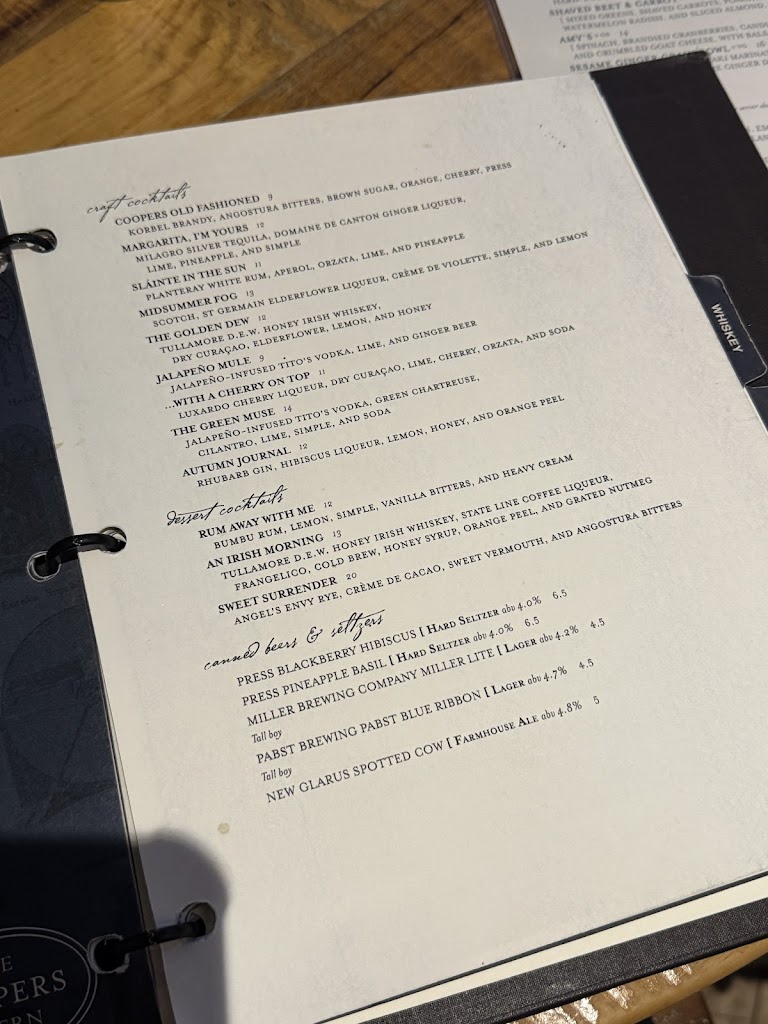 SHAVED BEET & CARROT
[ MIXED GREENS, SHAVED CARROTS,
WATERMELON RADISH, AND SLICED ALMOND
AMY'S 14
[ SPINACH, BRANDIED CRANBERRIES,
AND CRUMBLED GOAT CHEESE, WITH
SESAME GINGER
craft cocktails
COOPERS OLD FASHIONED 9
KORBEL BRANDY, ANGOSTURA BITTERS, BROWN SUGAR, ORANGE, CHERRY, PRESS
MARGARITA, I'M YOURS 12
MILAGRO SILVER TEQUILA, DOMAINE DE CANTON GINGER LIQUEUR,
LIME, PINEAPPLE, AND SIMPLE
SLÁINTE IN THE SUN 11
PLANTERAY WHITE RUM, APEROL, ORZATA, LIME, AND PINEAPPLE
MIDSUMMER FOG 13
SCOTCH, ST GERMAIN ELDERFLOWER LIQUEUR, CRÈME DE VIOLETTE, SIMPLE, AND LEMON
THE GOLDEN DEW 12
TULLAMORE D.E.W. HONEY IRISH WHISKEY,
DRY CURAÇAO, ELDERFLOWER, LEMON, AND HONEY
JALAPEÑO MULE 9
JALAPEÑO-INFUSED TITO'S VODKA, LIME, AND GINGER BEER
...WITH A CHERRY ON TOP 11
LUXARDO CHERRY LIQUEUR, DRY CURAÇAO, LIME, CHERRY, ORZATA, AND SODA
THE GREEN MUSE 14
JALAPEÑO-INFUSED TITO'S VODKA, GREEN CHARTREUSE,
CILANTRO, LIME, SIMPLE, AND SODA
AUTUMN JOURNAL 12
RHUBARB GIN, HIBISCUS LIQUEUR, LEMON, HONEY, AND ORANGE PEEL
dessert cocktails
RUM AWAY WITH ME 12
BUMBU RUM, LEMON, SIMPLE, VANILLA BITTERS, AND HEAVY CREAM
AN IRISH MORNING 13
TULLAMORE D.E.W. HONEY IRISH WHISKEY, STATE LINE COFFEE LIQUEUR,
FRANGELICO, COLD BREW, HONEY SYRUP, ORANGE PEEL, AND GRATED NUTMEG
SWEET SURRENDER 20
ANGEL'S ENVY RYE, CRÈME DE CACAO, SWEET VERMOUTH, AND ANGOSTURA BITTERS
canned beers & seltzers
PRESS BLACKBERRY HIBISCUS [ HARD SELTZER abv 4.0% 6.5
PRESS PINEAPPLE BASIL [ HARD SELTZER abv 4.0% 6.5
MILLER BREWING COMPANY MILLER LITE [ LAGER abv 4.2% 4.5
Tall boy
PABST BREWING PABST BLUE RIBBON [ LAGER abv 4.7% 4.5
Tall boy
NEW GLARUS SPOTTED COW [ FARMHOUSE ALE abv 4.8% 5
WHISKEY